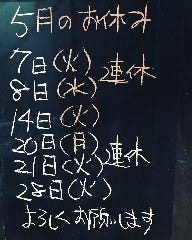 5月のお休み
7日(火)
8日(水) 連休
14日(火)
20日(月)
21日(火) 連休
28日(火)
よろしくお願いします